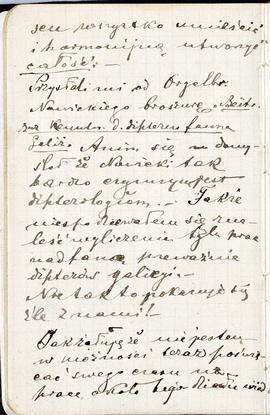 sen wszystko umieścić
i harmonijną utworzyć
całość.-
Przysłali mi od Orgelbr.
Nowickiego broszurę „Beitr.
zur Kenntn. d. dipteren fauna
Galiz. Anim się domy-
ślał że Nowicki tak
bardzo czynnym jest
dipterologiem. - Jakże
niespodziewałem się zna-
leść wyliczenia tylu prac
nad fauną przeważnie
dipterów galicyj.-
No tak to pokazuje się
źle z nami!
Jak żałuję że nie jestem
w możności teraz poświę-
cać swego czasu na
pracę około tego działu wied